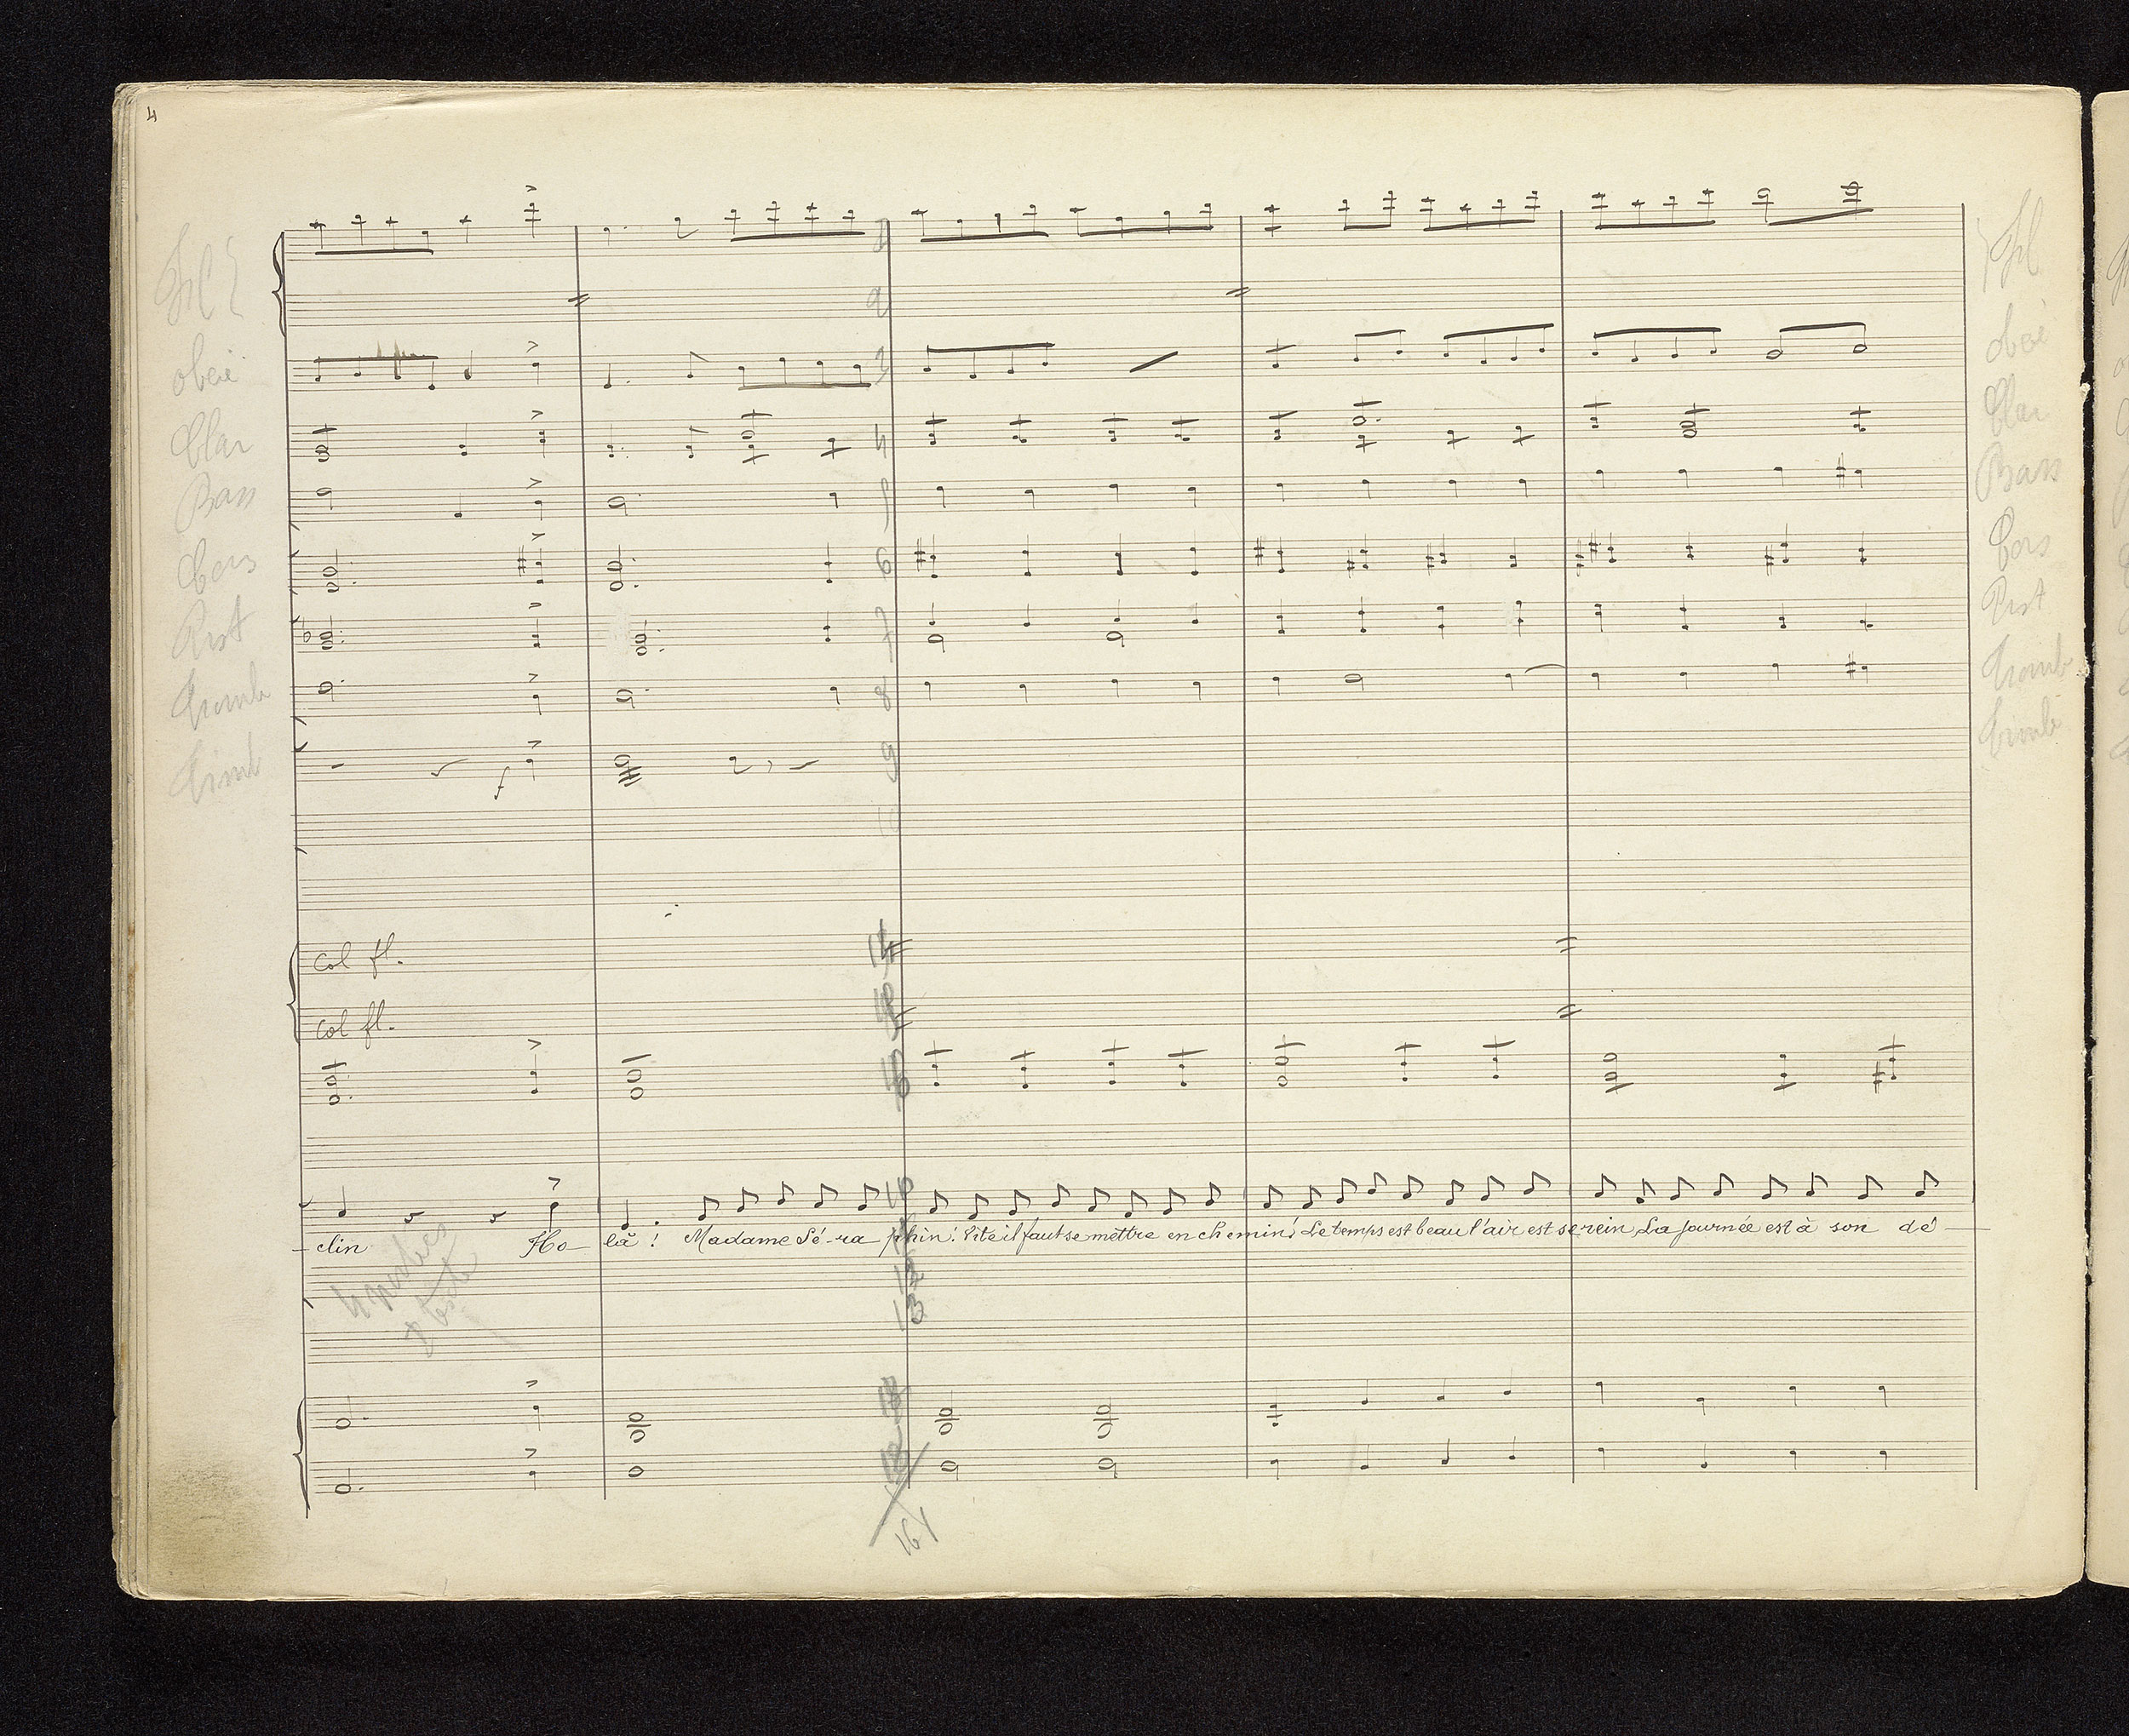 4
Fl
Fl
1
2
oboë
3
oboë
Clar
4
Clar
Bass
5
Bass
Cors
6
Cors
Pist
7
Pist
Tromb
8
Tromb
f
Timb
9
Timb
10
col fl.
col fl.
- clin Ho- là ! Madame Sé-ra phin! Vite il faut se mettre en chemin! Le temps est beau l'air est serein La journée est à son dé -
12
13
16